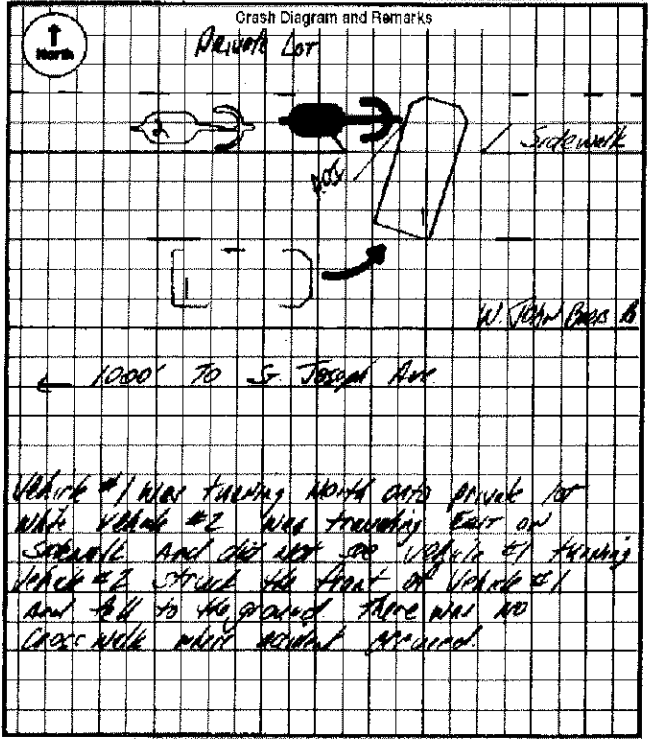 Crash Diagram and Remarks
North
Private Lot
2
Sidewalk
POI
1
1
W. John Beers
← 1000' To S Joseph Ave
Vehicle #1 was turning North onto private lot
while Vehicle #2 was traveling East on
Sidewalk And did not see vehicle #1 turning
Vehicle #2 struck the front of Vehicle #1
And fell to the ground. there was no
Crosswalk where accident occurred.